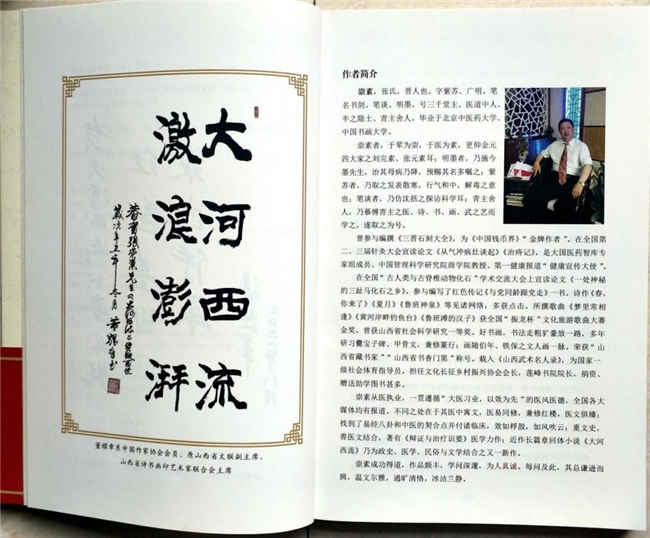 大河西流
激浪澎湃
董耀章系中国作家协会会员、原山西省文联副主席、
山西省诗书画印艺术家联合会主席
作者简介
崇素，张氏，晋人也。字紫苏、广明。笔
名书剑、笔谈、明墨。号三千堂主、医道中人、
半之隐士、青主舍人。毕业于北京中医药大学、
中国书画大学。
崇素者，于荤为崇，于医为素，更仰金元
四大家之刘完素、张元素耳；明墨者，乃施今
墨先生，治其母病乃降，预赐其名多嘱之；紫
苏者，乃取之发表散寒，行气和中，解毒之意
也；笔谈者，乃仿沈括之探访科学耳；青主舍
人，乃慕傅青主之医、诗、书、画、武之艺而
学之，遂取之为号。
曾参与编撰《三晋石刻大全》，为《中国钱币界》“金牌作者”，在全国第
二、三届针灸大会宣读论文《从气冲病灶谈起》《治痔记》，是大国医药智库专
家组成员、中国管理科学研究院商学院教授、第一健康报道“健康宣传大使”。
在全国“古人类与古脊椎动物化石”学术交流大会上宣读论文《一处神秘
的三趾马化石之乡》。参与编写了红色传记《与党同龄跟党走》一书。诗作《春，
你来了》《夏月》《鲁班神泉》等见诸网络，多获点击。所撰歌曲《梦里常相
逢》《黄河岸畔钓鱼台》《鲁班滩的汉子》获全国“振龙杯”文化旅游歌曲大赛
金奖。曾获山西省社会科学研究一等奖。好书画，书法走粗犷豪放一路，多年
研习爨宝子碑、甲骨文，兼修篆行；画随伯年、铁保之文人画一脉。荣获“山
西省藏书家”“山西省书香门第”称号。载入《山西武术名人录》，为国家一
级社会体育指导员。担任文化长征乡村振兴协会会长，莲峰书院院长，捐资、
赠送助学图书甚多。
崇素从医执业，一贯遵循“大医习业，以效为先”的医风医德，全国各大
媒体均有报道，不同之处在于其医中寓文，医易同修，兼修红楼，医文俱臻；
找到了易经八卦和中医的契合点并付诸临床，效如桴鼓，如风吹云；重文史，
善医文结合，著有《辩证与治疗识要》医学力作；近作长篇章回体小说《大河
西流》乃为政史、医学、民俗与文学结合之又一新作。
崇素成功得道，作品颇丰，学问深邃，为人真诚。每问及此，其总谦逊而
揖，温文尔雅，通旷清恪，冰洁兰静。